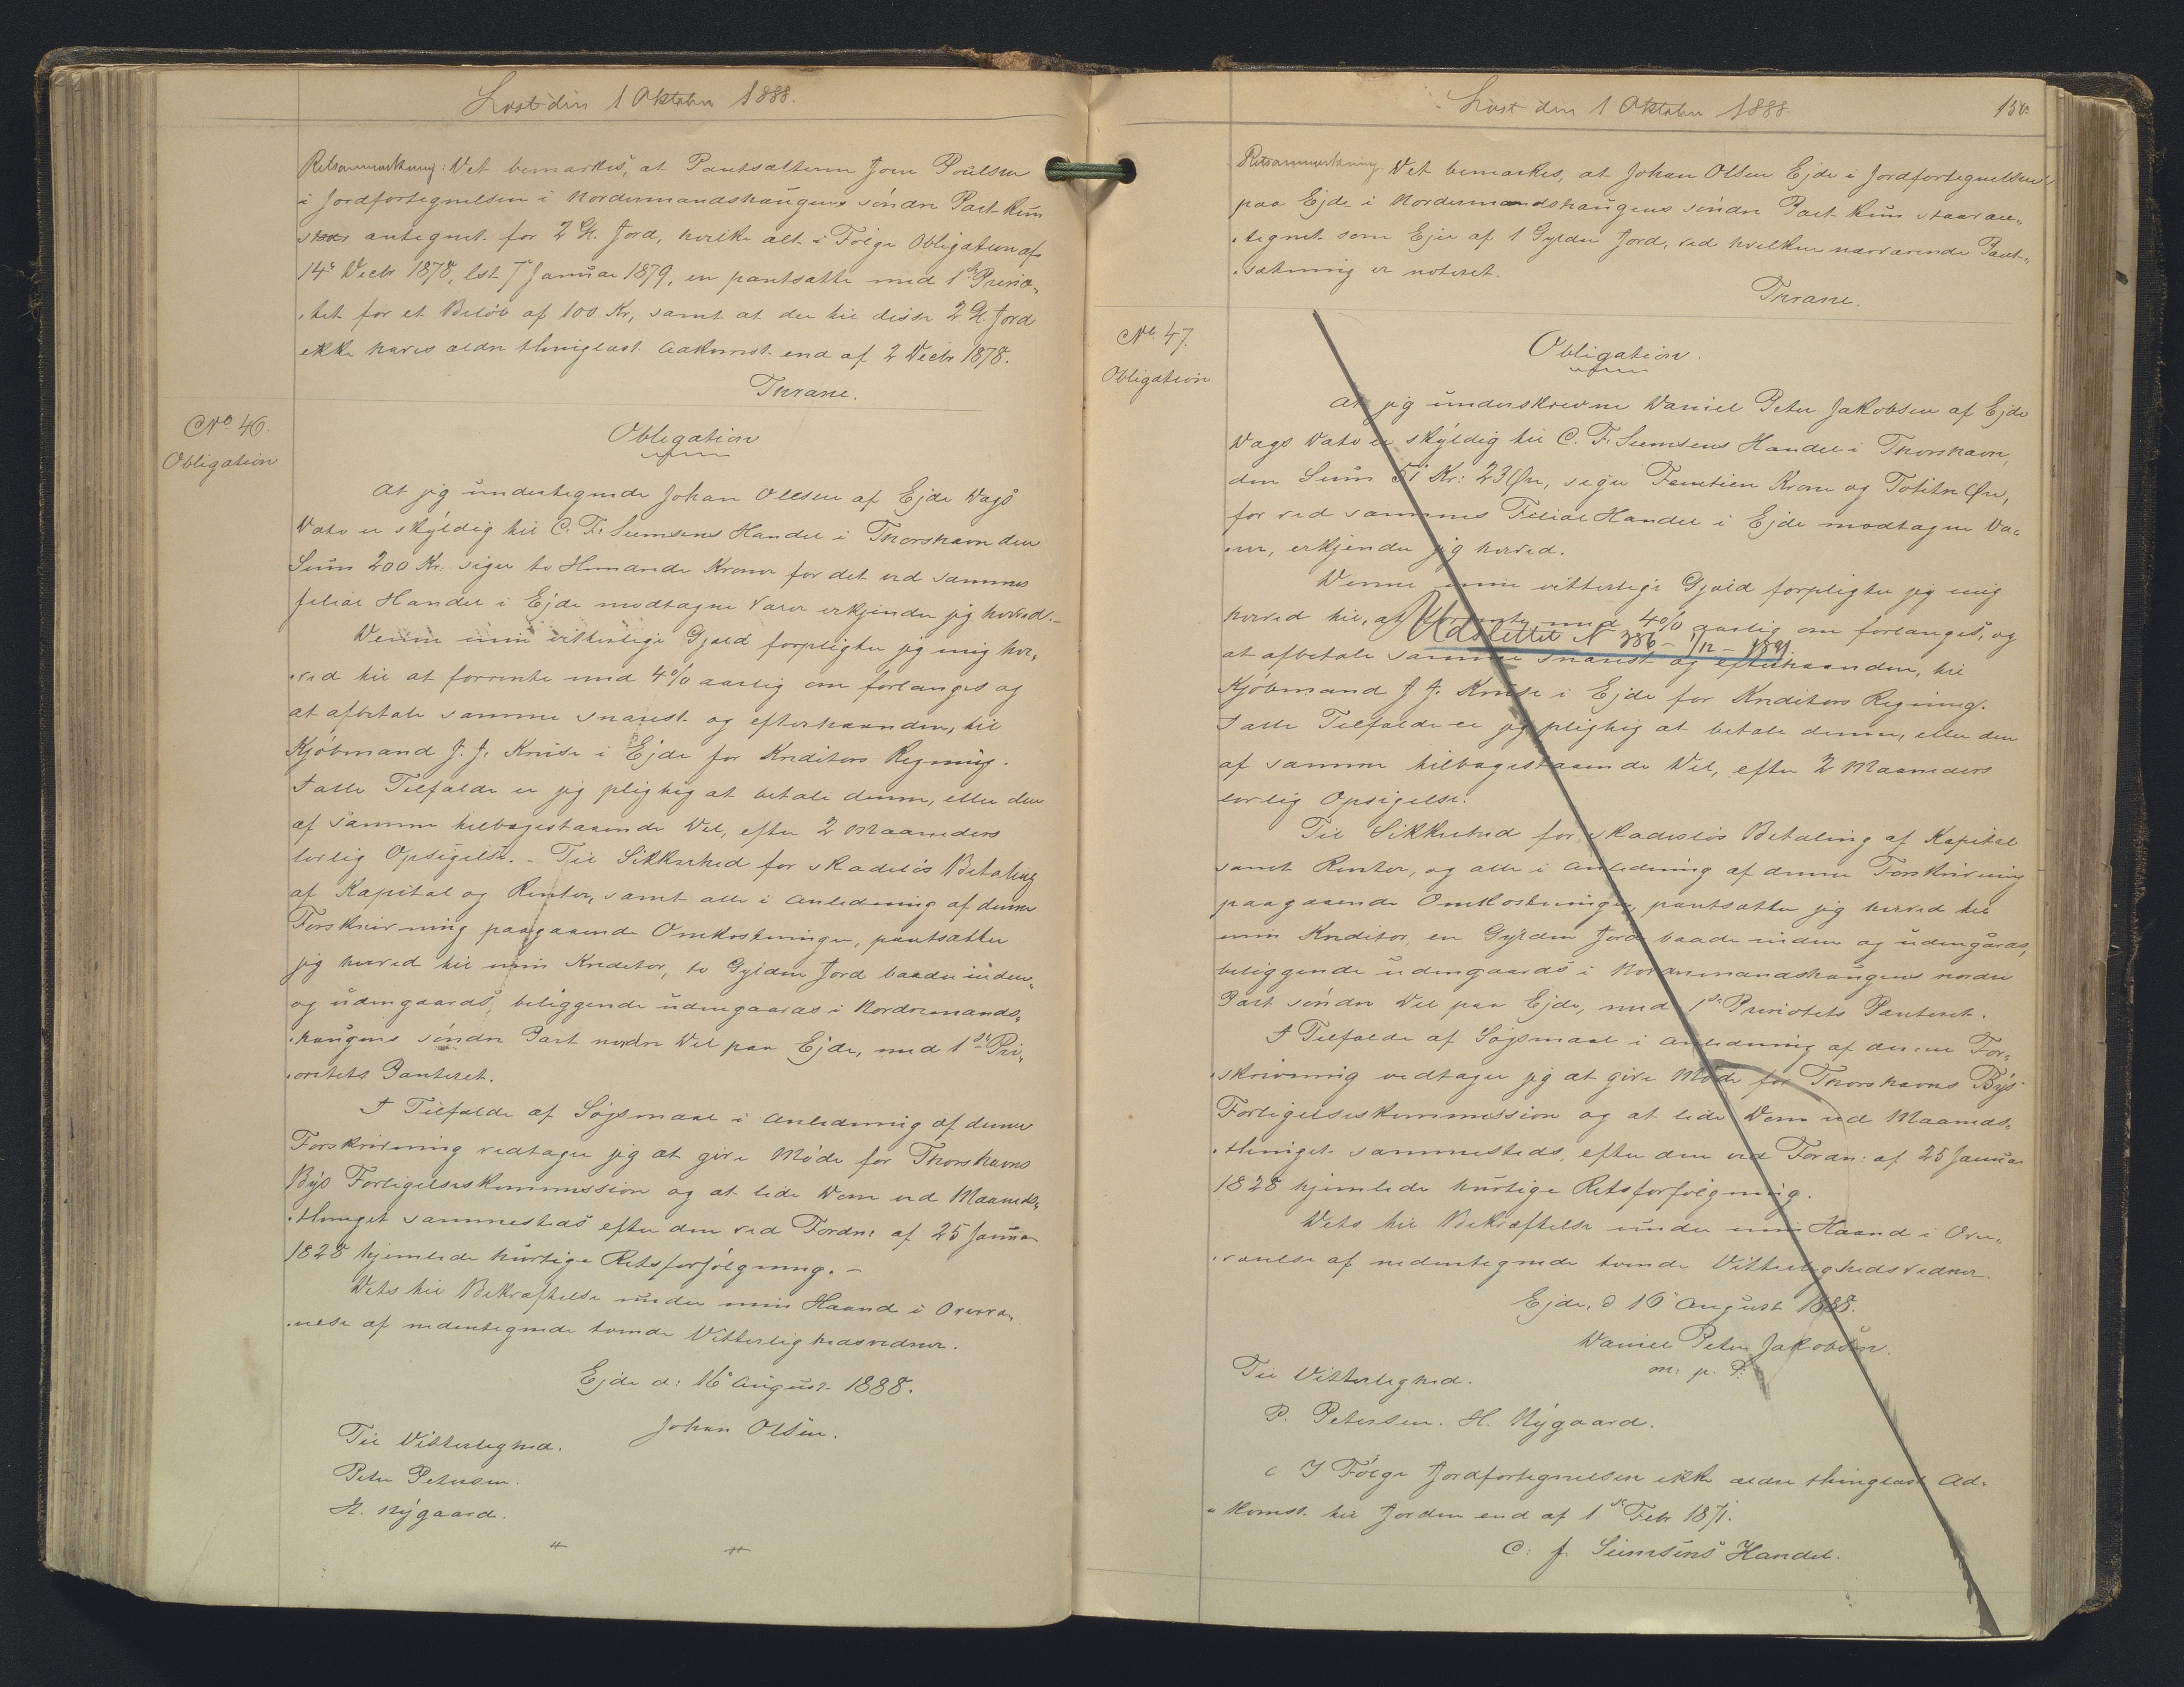 Læst den 1 Oktober 1888.
Retsanmærkning: Det bemærkes, at Pantsætteren Joen Poulsen
i Jordfortegnelsen i Nordermandshaugens söndre Part kun
staar antegnet for 2 Gl. Jord, hvilke alt i Følge Obligation af
14de Decbr 1878, lst. 7 Januar 1879, er pantsatte med 1ste Priori-
tet for et Beløb af 100 Kr, samt at der til disse 2 Gl. Jord
ikke haves ældre thinglæst Adkomst end af 2 Decbr 1878.
Thrane.
No 46.
Obligation
Obligation
At jeg undertegnede Johan Olsen af Ejde Vags
Vatn er skyldig til C. F. Siemsens Handel i Thorshavn den
Sum 200 Kr. siger to Hundrede Kroner for det ved sammes
filial Handel i Ejde modtagne Varer erkjender jeg herved.-
Denne min vitterlige Gjæld forpligter jeg mig her-
ved til at forrente med 4% aarlig om forlanges og
at afbetale samme snarest og efterhaanden, til
Kjøbmand J. J. Kruse i Ejde for Kreditors Regning.
I alle Tilfælde er jeg pligtig at betale denne, eller den
af samme tilbagestaaende Del, efter 2 Maaneders
lovlig Opsigelse. - Til Sikkerhed for skadeslös Betaling
af Kapital og Renter, samt alle i Anledning af denne
Forskrivning paagaaende Omkostninger, pantsætter
jeg herved til min Kreditor, to Gylden Jord baade inden-
og udengaards, beliggende udengaards i Nordremands-
haugens söndre Part nordre Del paa Ejde, med 1ste Pri-
oritets Panteret.
I Tilfælde af Søgsmaal i Anledning af denne
Forskrivning vedtager jeg at give Møde for Thorshavns
Byes Forligelseskommission og at lide Dom ved Maaneds-
thinget sammesteds efter den ved Fordn: af 25 Januar
1828 hjemlede hurtige Retsforfølgning. -
Dets til Bekræftelse under min Haand i Overvæ-
relse af nedentegnede tvende Vitterlighedsvidner.
Ejde d: 16 August 1888.
Johan Olsen.
Til Vitterlighed.
Peter Petersen.
H. Nýgaard.
Læst den 1 Oktober 1888.
150.
Retsanmærkning Det bemærkes, at Johan Olsen Ejde i Jordfortegnelsen
paa Ejde i Nordermandshaugens söndre Part kun staar an-
tegnet som Ejer af 1 Gylden Jord, ved hvilken nærværende Pant-
sætning er noteret.
Thrane.
No. 47.
Obligation
Obligation.
At jeg underskrevne Daniel Peter Jakobsen af Ejde
Vags Vatn er skyldig til C. F. Siemsens Handel i Thorshavn,
den Sum 51 Kr: 23 Øre, siger Femtien Krone og Totitre Øre,
for ved sammes Filial Handel i Ejde modtagne Va-
rer, erkjender jeg herved.
Denne min vitterlige Gjæld forpligter jeg mig
herved til, at forrente med 4% aarlig om forlanges, og
Udslettet N 386 - 1/12 - 1891
at afbetale samme snarest og efterhaanden, til
Kjöbmand J. J. Kruse i Ejde for Kreditors Regning.
I alle Tilfælde er jeg pligtig at betale denne, eller den
af samme tilbagestaaende Del, efter 2 Maaneders
lovlig Opsigelse.
Til Sikkerhed for skadeslös Betaling af Kapital
samt Renter, og alle i Anledning af denne Forskrivning
paagaaende Omkostninger, pantsætter jeg herved til
min Kreditor, en Gylden Jord baade inden og udengards,
beliggende udengaards i Nordremandshaugens nordre
Part söndre Del paa Ejde, med 1ste Prioritets Panteret.
I Tilfælde af Søgsmaal i Anledning af denne For-
skrivning vedtager jeg at give Møde for Thorshavns Byes
Forligelseskommission og at lide Dom ved Maaneds-
thinget sammesteds, efter den ved Fordn: af 25 Januar
1828 hjemlede hurtige Retsforfølgning.
Dets til Bekræftelse under min Haand i Over-
værelse af nedentegnede tvende Vitterlighedsvidner.
Ejde, d 16 August 1888.
Daniel Peter Jakobsen.
m. p. F.
Til Vitterlighed.
P. Petersen. H. Nýgaard.
I Følge Jordfortegnelsen ikke ældre thinglæst Ad-
komst til Jorden end af 1ste Febr 1871.
C. F. Siemsens Handel.